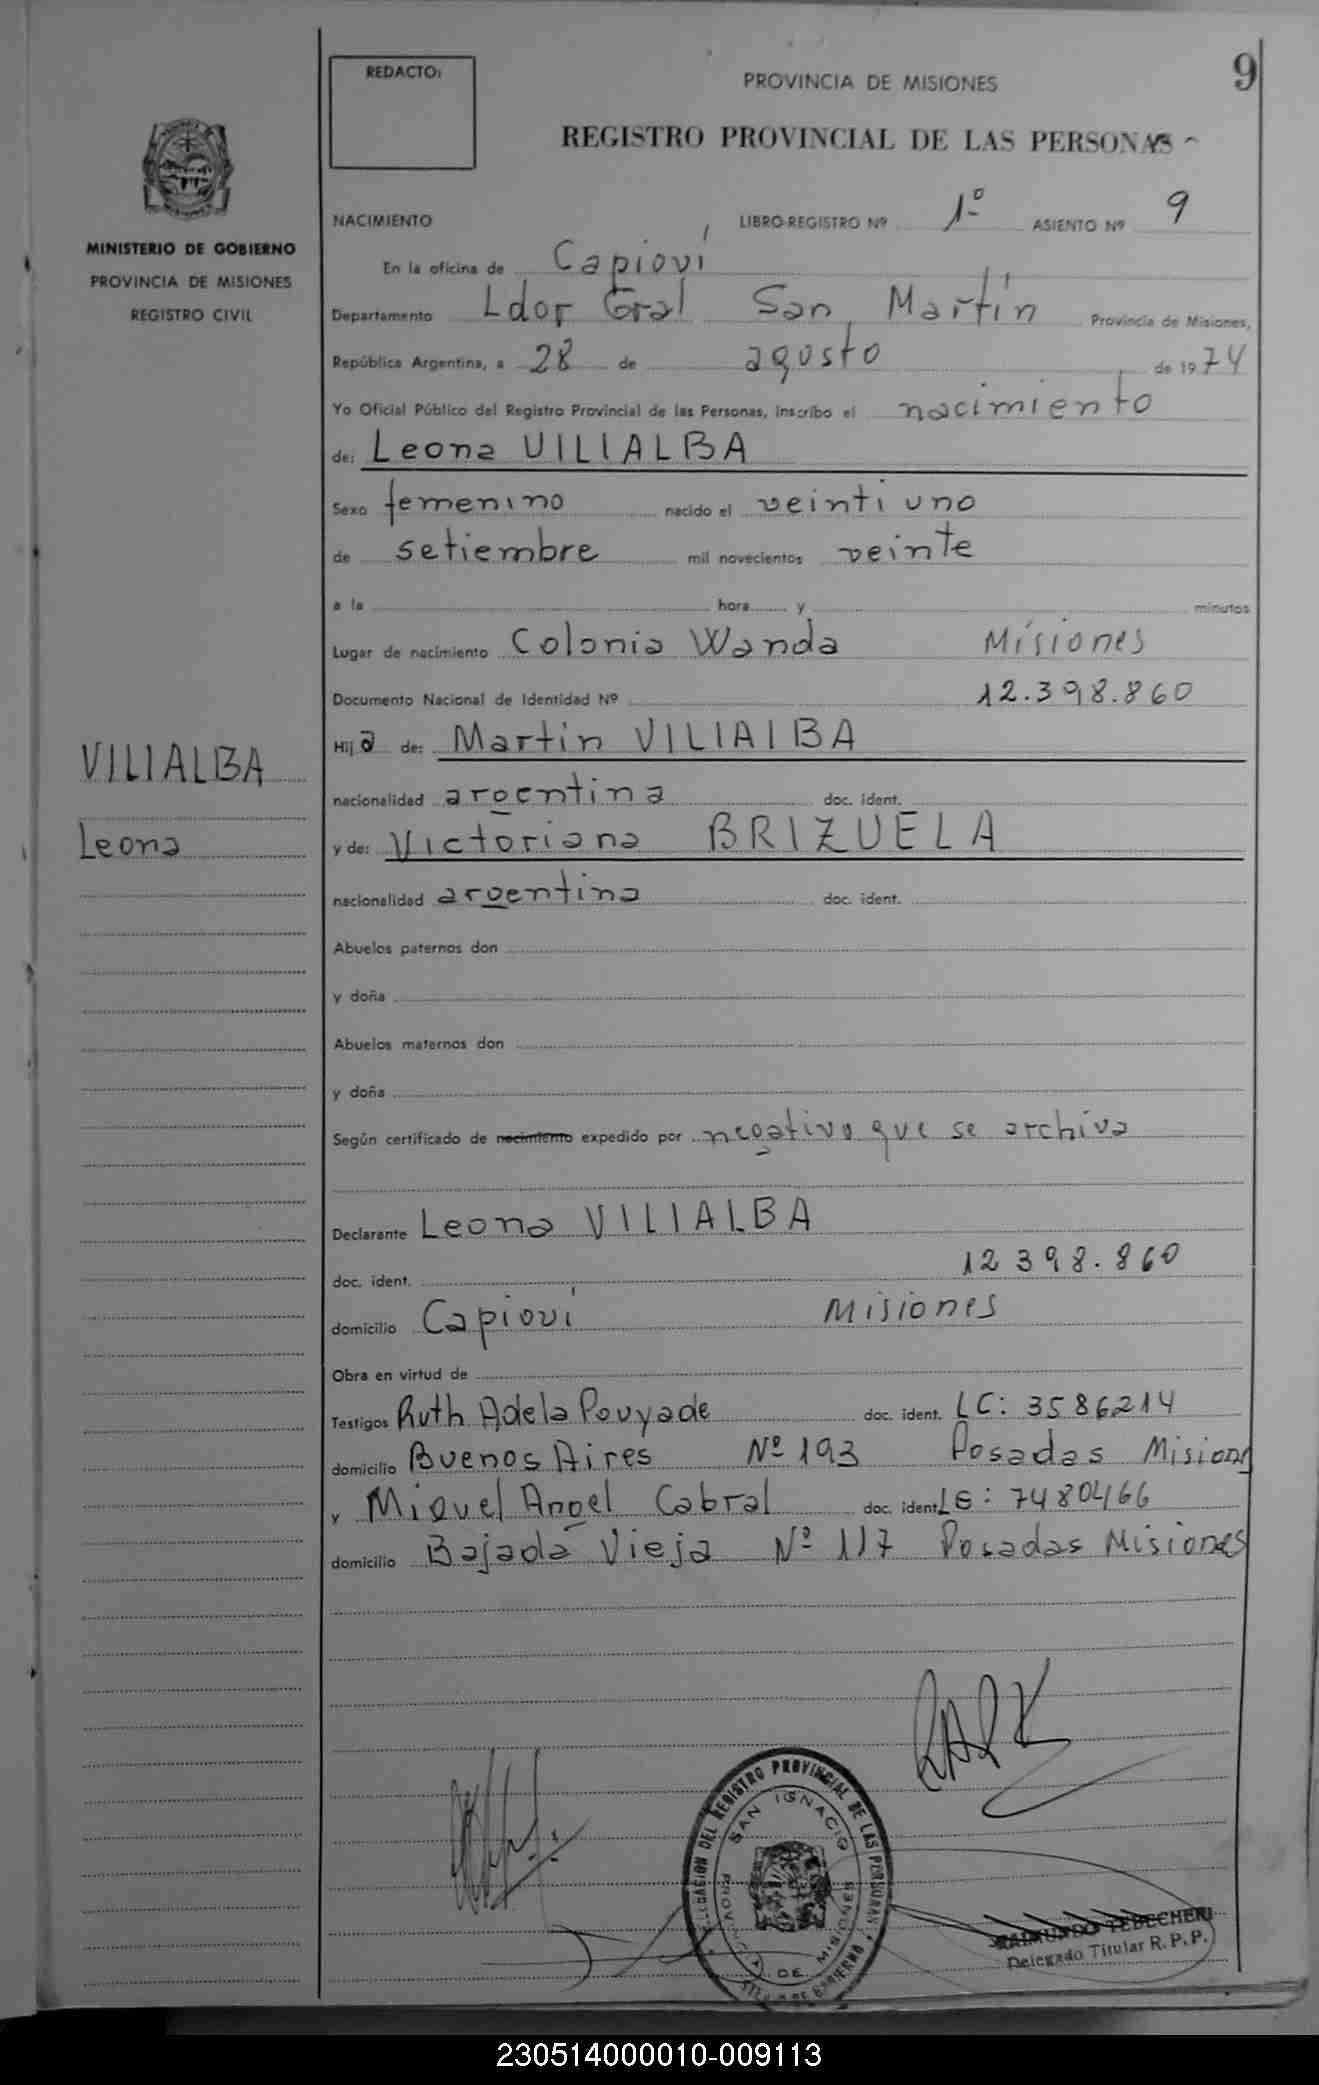 REDACTO:
PROVINCIA DE MISIONES
9
REGISTRO PROVINCIAL DE LAS PERSONAS
MINISTERIO DE GOBIERNO
PROVINCIA DE MISIONES
REGISTRO CIVIL
NACIMIENTO LIBRO-REGISTRO Nº 1º ASIENTO Nº 9
En la oficina de Capioví
Departamento Ldor Gral San Martín Provincia de Misiones,
República Argentina, a 28 de agosto de 1974
Yo Oficial Público del Registro Provincial de las Personas, inscribo el nacimiento
de: Leona VILIALBA
Sexo femenino nacido el veinti uno
de setiembre mil novecientos veinte
a la hora y minutos
Lugar de nacimiento Colonia Wanda Misiones
Documento Nacional de Identidad Nº 12.398.860
VILIALBA
Leona
Hija de: Martin VILIALBA
nacionalidad argentina doc. ident.
y de: Victoriana BRIZUELA
nacionalidad argentina doc. ident.
Abuelos paternos don
y doña
Abuelos maternos don
y doña
Según certificado de nacimiento expedido por negativo que se archiva
Declarante Leona VILIALBA
doc. ident. 12 398.860
domicilio Capioví Misiones
Obra en virtud de
Testigos Ruth Adela Pouyade doc. ident. LC: 3586214
domicilio Buenos Aires Nº 193 Posadas Misiones
y Miguel Angel Cabral doc. ident LE: 7480466
domicilio Bajada Vieja Nº 117 Posadas Misiones
DELEGACION DEL REGISTRO PROVINCIAL DE LAS PERSONAS
SAN IGNACIO
PROVINCIA DE MISIONES
RAIMUNDO TEDECHERI
Delegado Titular R.P.P.
230514000010-009113